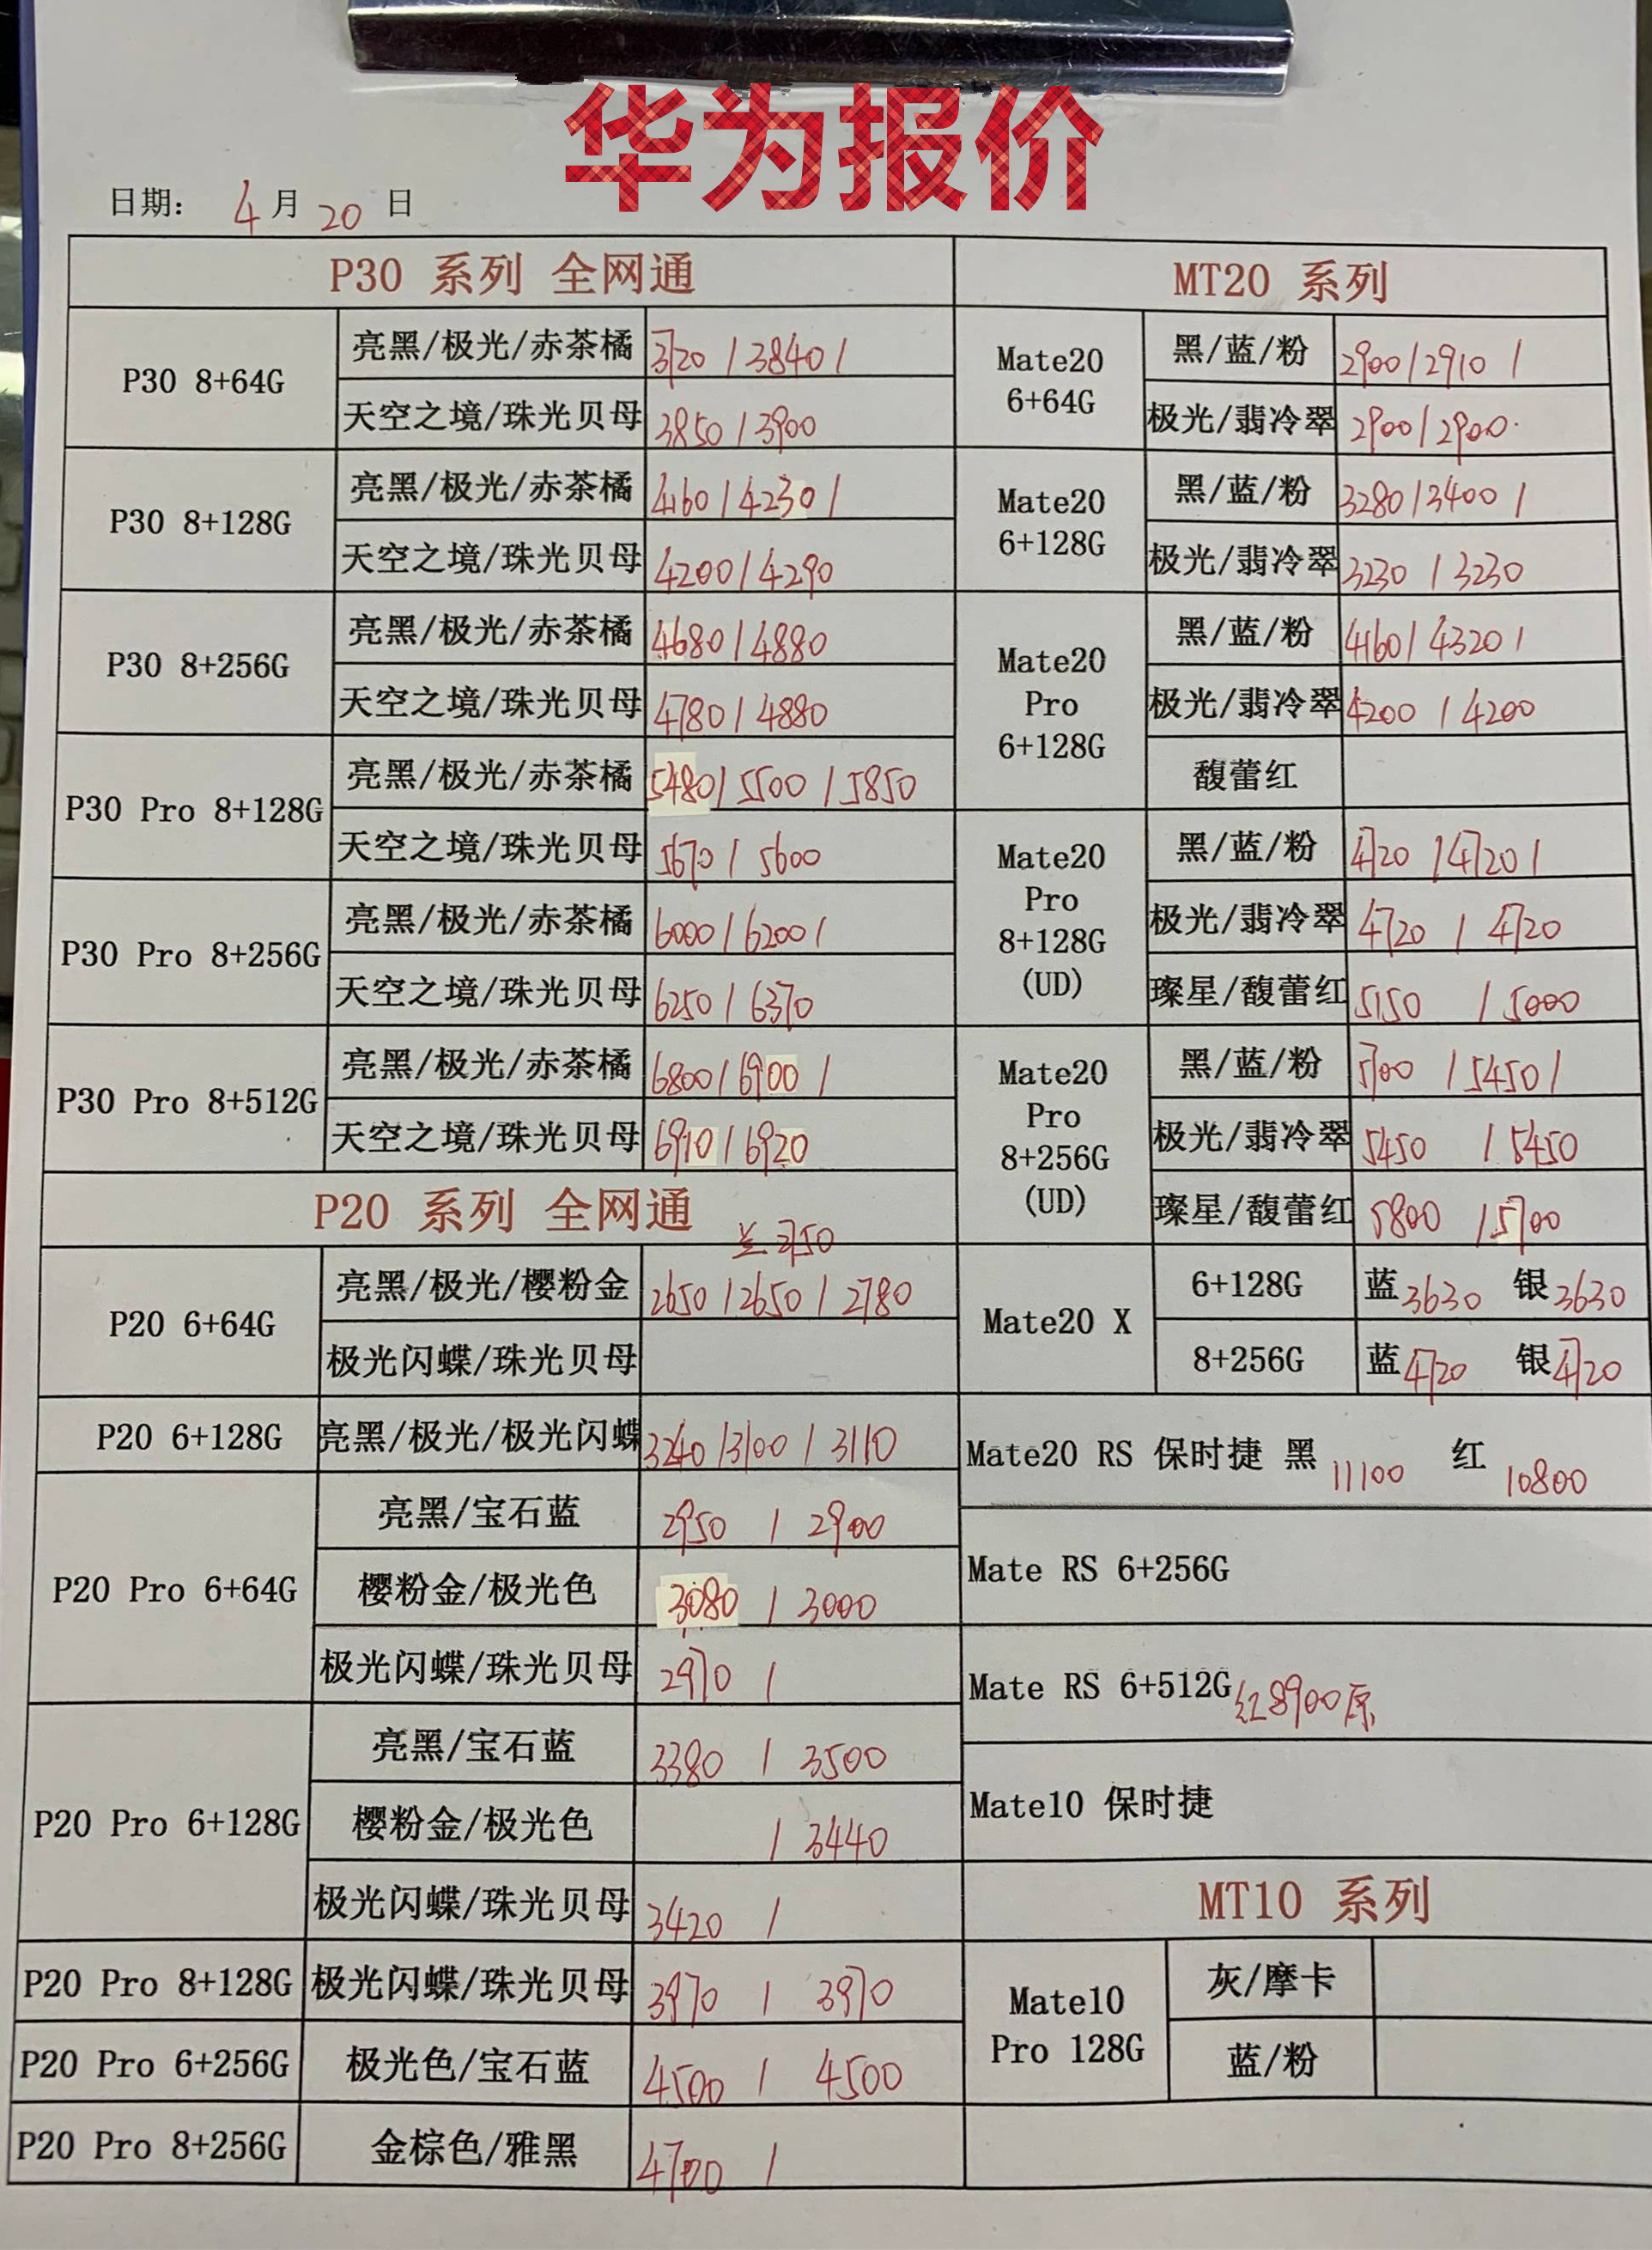 华为报价
日期： 4月20日
P30 系列 全网通
P30 8+64G
亮黑/极光/赤茶橘 3720/3840/
天空之境/珠光贝母 3850/3900
P30 8+128G
亮黑/极光/赤茶橘 4160/4230/
天空之境/珠光贝母 4200/4290
P30 8+256G
亮黑/极光/赤茶橘 4680/4880
天空之境/珠光贝母 4780/4880
P30 Pro 8+128G
亮黑/极光/赤茶橘 5480/5500/5850
天空之境/珠光贝母 5670/5600
P30 Pro 8+256G
亮黑/极光/赤茶橘 6000/6200/
天空之境/珠光贝母 6250/6370
P30 Pro 8+512G
亮黑/极光/赤茶橘 6800/6900/
天空之境/珠光贝母 6910/6920
P20 系列 全网通
P20 6+64G
亮黑/极光/樱粉金 2650/2650/2780
极光闪蝶/珠光贝母
P20 6+128G
亮黑/极光/极光闪蝶 3240/3100/3110
P20 Pro 6+64G
亮黑/宝石蓝 2950/2900
樱粉金/极光色 3080/3000
极光闪蝶/珠光贝母 2970/
P20 Pro 6+128G
亮黑/宝石蓝 3380/3500
樱粉金/极光色 /3440
极光闪蝶/珠光贝母 3420/
P20 Pro 8+128G
极光闪蝶/珠光贝母 3970/3970
P20 Pro 6+256G
极光色/宝石蓝 4500/4500
P20 Pro 8+256G
金棕色/雅黑 4700/
MT20 系列
Mate20
6+64G
黑/蓝/粉 2900/2910/
极光/翡冷翠 2900/2900
Mate20
6+128G
黑/蓝/粉 3280/3400/
极光/翡冷翠 3230/3230
Mate20
Pro
6+128G
黑/蓝/粉 4160/4320/
极光/翡冷翠 4200/4200
馥蕾红
Mate20
Pro
8+128G
(UD)
黑/蓝/粉 4720/4720/
极光/翡冷翠 4720/4720
璨星/馥蕾红 5150/5000
Mate20
Pro
8+256G
(UD)
黑/蓝/粉 5700/5450/
极光/翡冷翠 5450/5450
璨星/馥蕾红 5800/5700
Mate20 X
6+128G 蓝3630 银3630
8+256G 蓝4720 银4720
Mate20 RS 保时捷 黑 11100 红 10800
Mate RS 6+256G
Mate RS 6+512G 红8900原
Mate10 保时捷
MT10 系列
Mate10
Pro 128G
灰/摩卡
蓝/粉